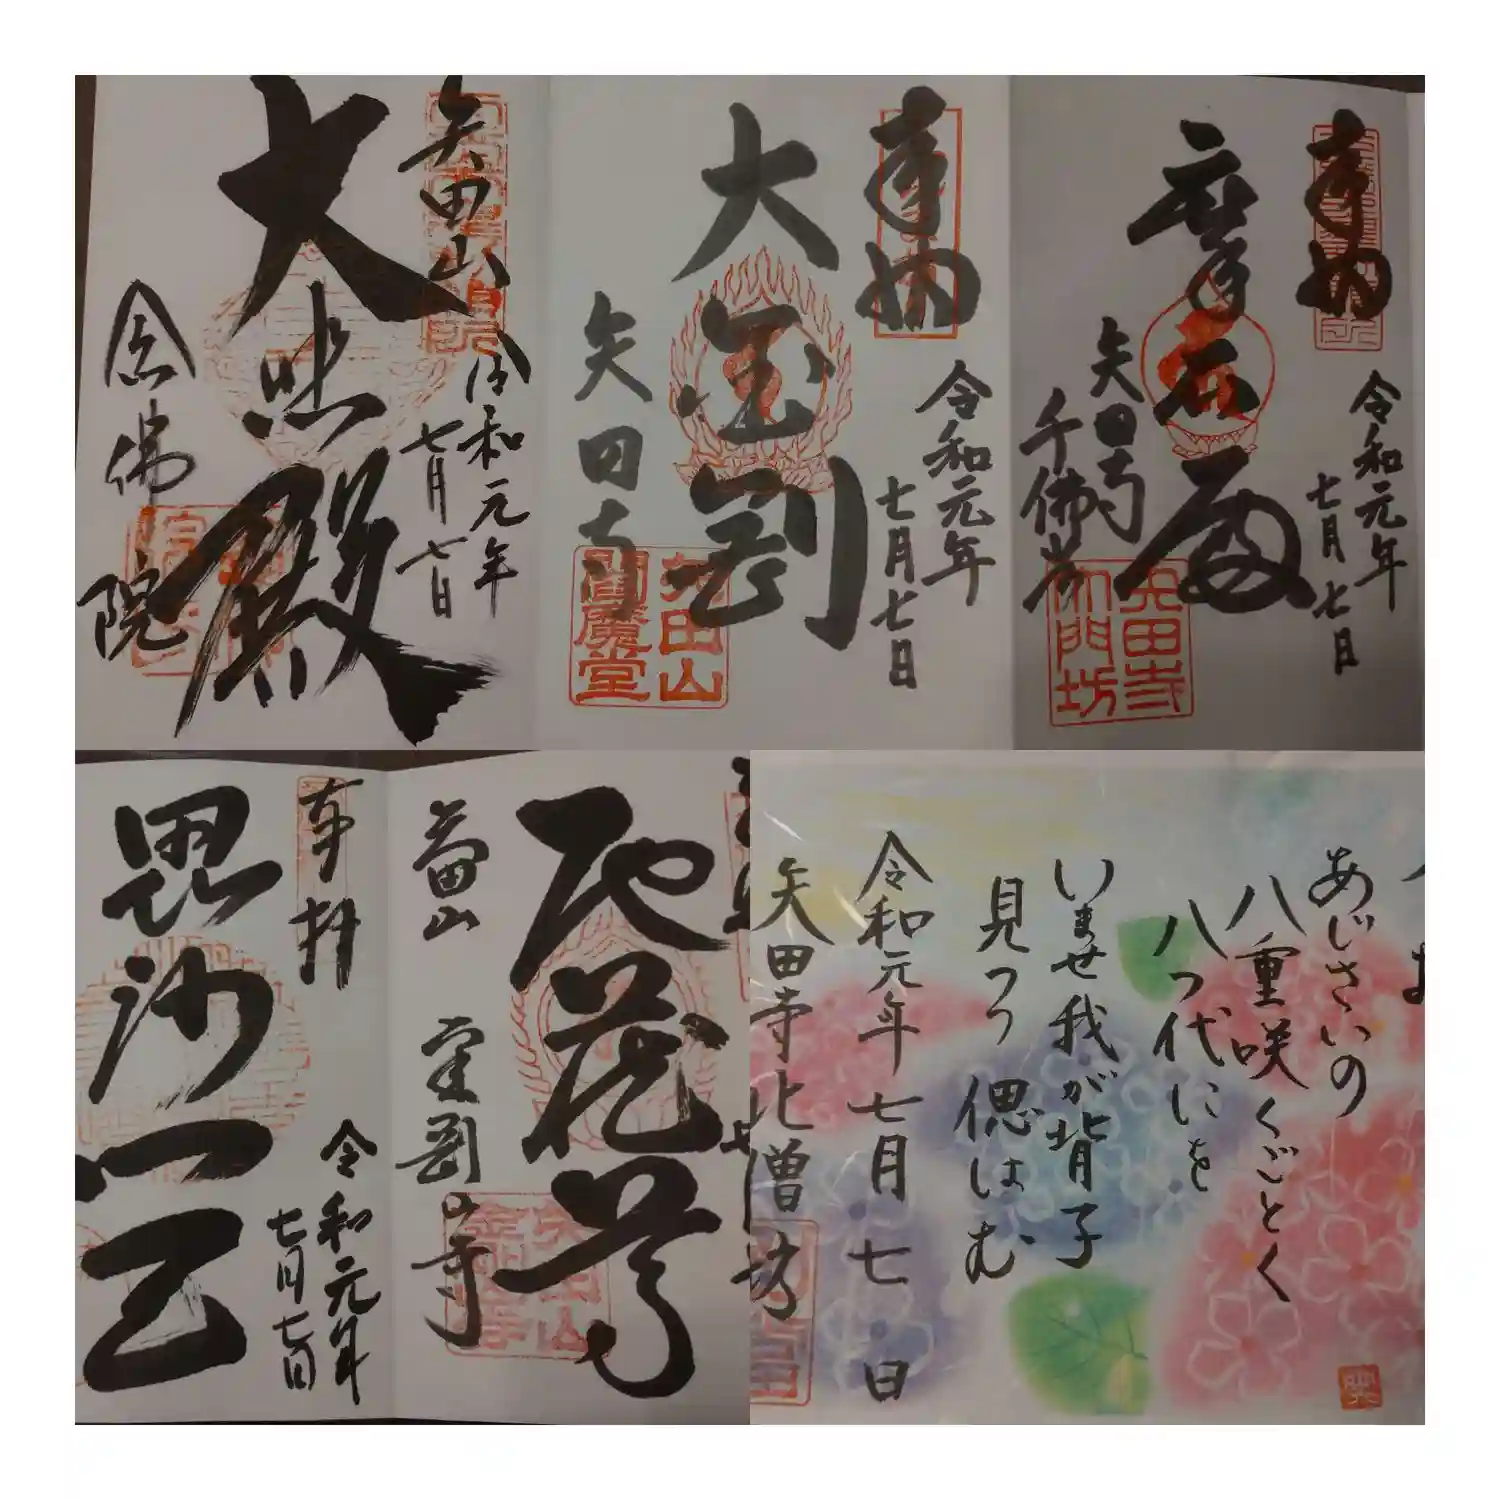 矢田山
令和元年
七月七日
大悲殿
念佛院
奉納
令和元年
七月七日
大金剛
矢田寺
矢田山
閻魔堂
奉納
令和元年
七月七日
矢田寺
千佛堂
矢田寺
北門坊
奉拝
令和元年
七月七日
毘沙
地蔵尊
金剛山寺
あじさいの
八重咲くごとく
八つ代にを
いませ我が背子
見つつ偲はむ
令和元年七月七日
矢田寺北僧坊